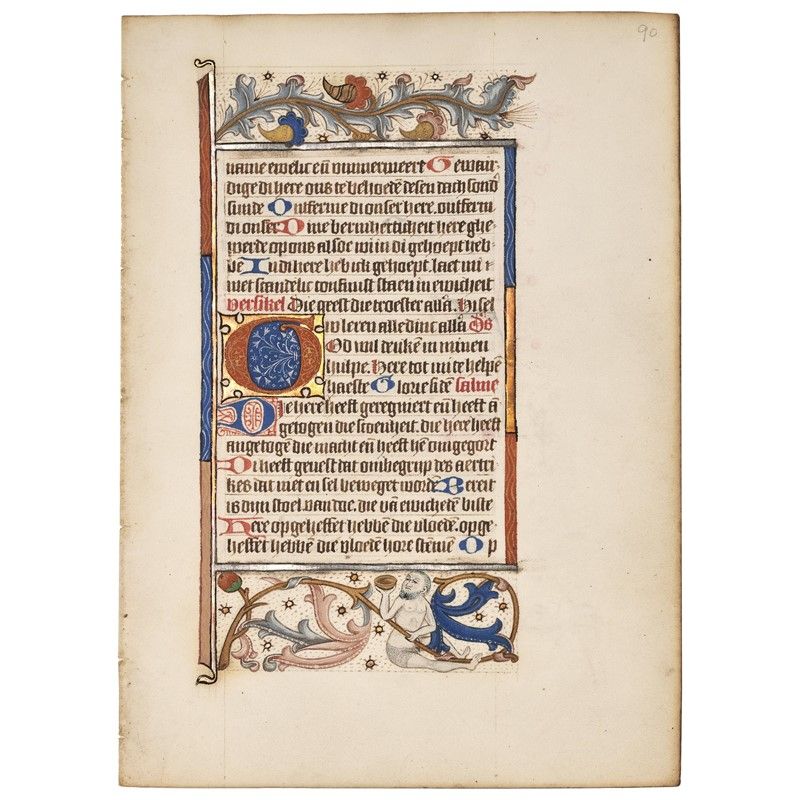 90
name ewelic en̄ ummermeert Gewair-
dige di here ons te behoedē desen dach sond
sunde Ontferme di onser here. ontferm
di onser Dine bermherticheit here ghe-
werde op ons alsoe wi in di gehoept heb-
bē In di here heb ic gehoept. laet mi
niet scandelic confuist staen in ewicheit
versikel Die geest die troester allā. Hi sel
u leren alle dinc allā
God wil denkē in minen
hulpe. Here tot mi te helpē
haeste Glorie si dē salme
De here heeft geregniert en̄ heeft ā
getogen die scoenheit. die here heeft
angetogē die macht en̄ heeft hē omgegort
Di heeft gevest dat ombegrip des aertri
kes dat niet en sel beweget wordē Bereit
is dijn stoel van doe. die vā ewichedē biste
Here op geheffet hebbē die vloedē. opge-
heffet hebbē die vloedē hore stēmē Op